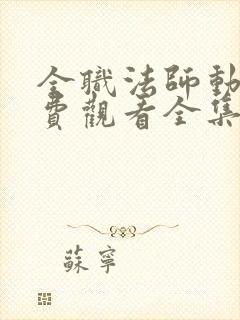 全職法師動
費觀看全集
蘇寧